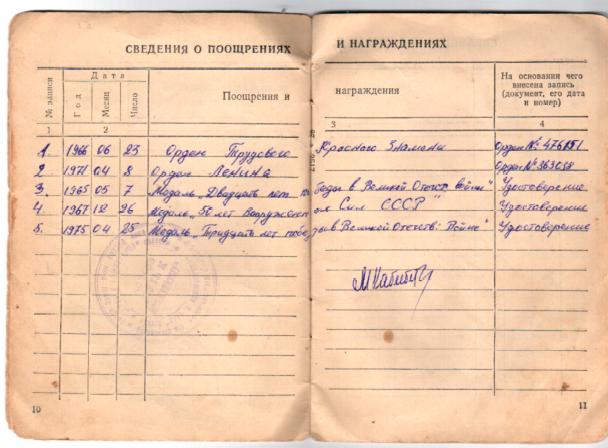 СВЕДЕНИЯ О ПООЩРЕНИЯХ И НАГРАЖДЕНИЯХ
№ записи
Дата
Год
Месяц
Число
Поощрения и награждения
На основании чего
внесена запись
(документ, его дата
и номер)
1 2 3 4
1. 1966 06 23 Орден Трудового Красного Знамени Орден №
2. 1971 04 8 Орден Ленина Орден № 363058
3. 1965 05 7 Медаль „Двадцать лет победы в Великой Отечст. войне" Удостоверение
4. 1967 12 26 Медаль „50 лет Вооружен ых Сил СССР" Удостоверение
5. 1975 04 25 Медаль „Тридцать лет победы в Великой Отечеств. Войне" Удостоверение
10
11